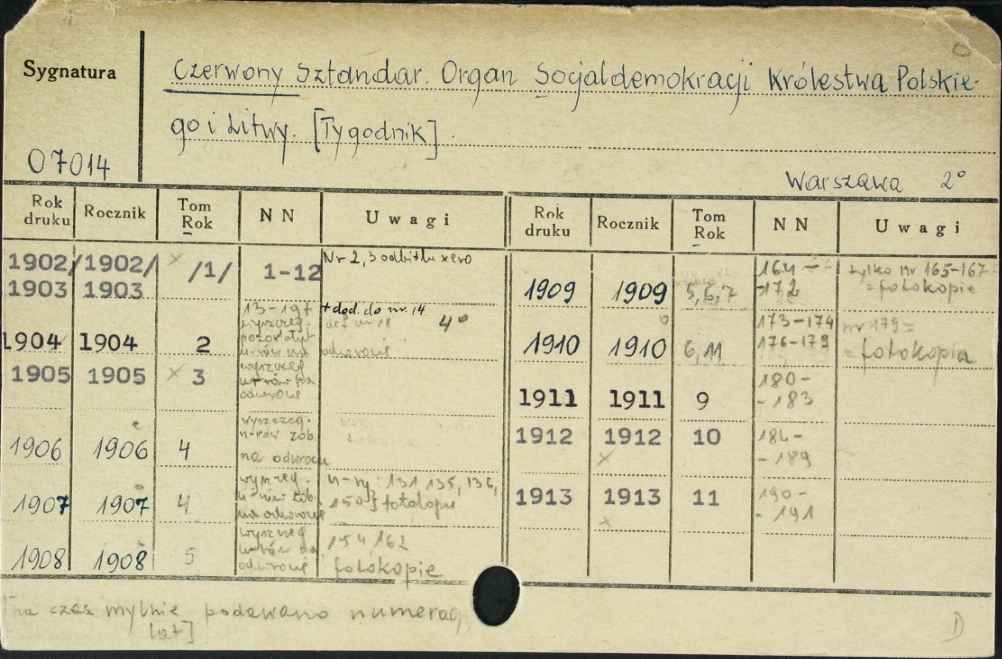 Sygnatura
Czerwony Sztandar. Organ Socjaldemokracji Królestwa Polskie-
go i Litwy. [Tygodnik].
07014
Warszawa 2°
Rok druku Rocznik Tom Rok NN Uwagi
1902/1903 1902/1903 × /1/ 1-12 Nr 2,3 odbitka xero
1904 1904 2 13-197 + dod. do nr. 14 4°
1905 1905 × 3
1906 1906 4 wyszczeg. n-rów zob. na odwrocie
1907 1907 4 n-ry: 131, 135, 136, 150] fotokopie
1908 1908 5 154 162 fotokopie
Rok druku Rocznik Tom Rok NN Uwagi
1909 1909 5,6,7 164-172 tylko nr 165-167 = fotokopie
1910 1910 6,11 173-174 176-179 nr 179 = fotokopia
1911 1911 9 180-183
1912 1912 10 184-189
×
1913 1913 11 190-191
×
na czas mylnie podawano numerac
lat]
D